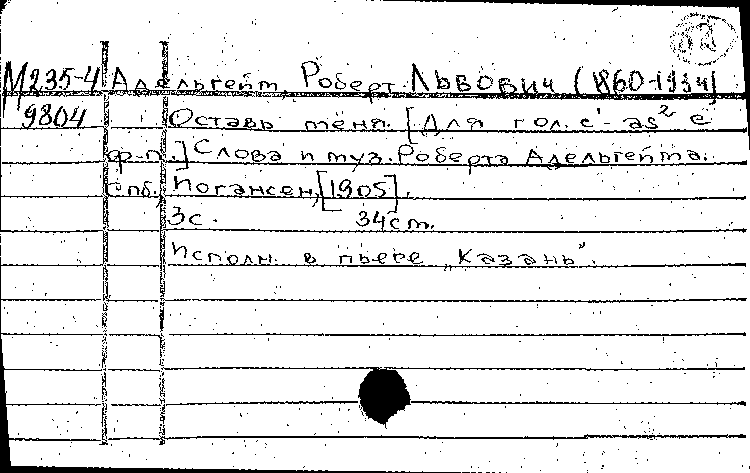 М235-4 Адельгейм, Роберт Львович (1860-1934)
9804 Оставь меня. [Для гол. c¹-as² с
ф-п.] Слова и муз. Роберта Адельгейма.
Спб., Иогансен, [1905].
3с. 34см.
Исполн. в пьесе „Казань".